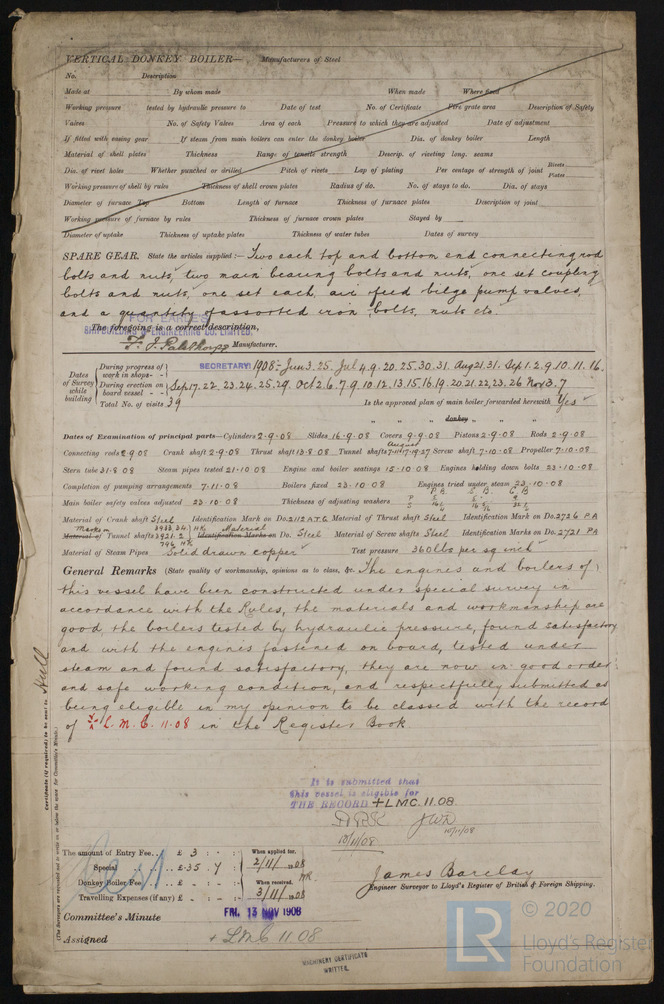 VERTICAL DONKEY BOILER— Manufacturers of Steel
No. Description
Made at By whom made When made Where fixed
Working pressure tested by hydraulic pressure to Date of test No. of Certificate Fire grate area Description of Safety
Valves No. of Safety Valves Area of each Pressure to which they are adjusted Date of adjustment
If fitted with easing gear If steam from main boilers can enter the donkey boiler Dia. of donkey boiler Length
Material of shell plates Thickness Range of tensile strength Descrip. of riveting long. seams
Dia. of rivet holes Whether punched or drilled Pitch of rivets Lap of plating Per centage of strength of joint Rivets Plates
Working pressure of shell by rules Thickness of shell crown plates Radius of do. No. of stays to do. Dia. of stays
Diameter of furnace Top Bottom Length of furnace Thickness of furnace plates Description of joint
Working pressure of furnace by rules Thickness of furnace crown plates Stayed by
Diameter of uptake Thickness of uptake plates Thickness of water tubes Dates of survey
SPARE GEAR. State the articles supplied:— Two each top and bottom end connecting rod
bolts and nuts, two main bearing bolts and nuts, one set coupling
bolts and nuts, one set each, air feed bilge pump valves,
and a quantity of assorted iron bolts, nuts etc.
FOR EARLE'S
The foregoing is a correct description,
SHIPBUILDING & ENGINEERING CO. LIMITED.
Manufacturer.
SECRETARY
Dates of Survey while building
During progress of work in shops - - 1908:- Jun 3. 25. Jul 4. 9. 20. 25. 30. 31. Aug 21. 31. Sep 1. 2. 9. 10. 11. 16.
During erection on board vessel - - Sep 17. 22. 23. 24. 25. 29. Oct 2. 6. 7. 9. 10. 12. 13. 15. 16. 19. 20. 21. 22. 23. 26 Nov 3. 7
Total No. of visits 39 Is the approved plan of main boiler forwarded herewith Yes
" " " donkey " " "
Dates of Examination of principal parts—Cylinders 2-9-08 Slides 16-9-08 Covers 9-9-08 Pistons 2-9-08 Rods 2-9-08
Connecting rods 2-9-08 Crank shaft 2-9-08 Thrust shaft 13-8-08 Tunnel shafts August Screw shaft 7-10-08 Propeller 7-10-08
Stern tube 31-8-08 Steam pipes tested 21-10-08 Engine and boiler seatings 15-10-08 Engines holding down bolts 23-10-08
Completion of pumping arrangements 7-11-08 Boilers fixed 23-10-08 Engines tried under steam 23-10-08
Main boiler safety valves adjusted 23-10-08 Thickness of adjusting washers
Material of Crank shaft Steel Identification Mark on Do. 2112 A.T.G Material of Thrust shaft Steel Identification Mark on Do. 2726 P A
Material of Tunnel shafts Marks on Identification Marks on Do. Material Steel Material of Screw shafts Steel Identification Marks on Do. 2721 P A
Material of Steam Pipes Solid drawn copper Test pressure 360 lbs per sq inch
General Remarks (State quality of workmanship, opinions as to class, &c. The engines and boilers of
this vessel have been constructed under special survey in
accordance with the Rules, the materials and workmanship are
good, the boilers tested by hydraulic pressure, found satisfactory
and with the engines fastened on board, tested under
steam and found satisfactory, they are now in good order
and safe working condition, and respectfully submitted as
being eligible in my opinion to be classed with the record
of L.M.C. 11-08 in the Register Book
It is submitted that
this vessel is eligible for
THE RECORD +LMC. 11.08.
10/11/08
10/11/08
Certificate (if required) to be sent to Hull
(The Surveyors are requested not to write on or below the space for Committee's Minute.)
The amount of Entry Fee .. £ 3 : - : When applied for,
Special .. £ 35 . 4 : 2/11/1908
Donkey Boiler Fee .. £ - : : When received,
Travelling Expenses (if any) £ - : : 3/11/1908
James Barclay
Engineer Surveyor to Lloyd's Register of British & Foreign Shipping.
Committee's Minute FRI. 13 NOV 1908
Assigned + LMC 11.08
MACHINERY CERTIFICATE
WRITTEN.
LR © 2020
Lloyd's Register
Foundation